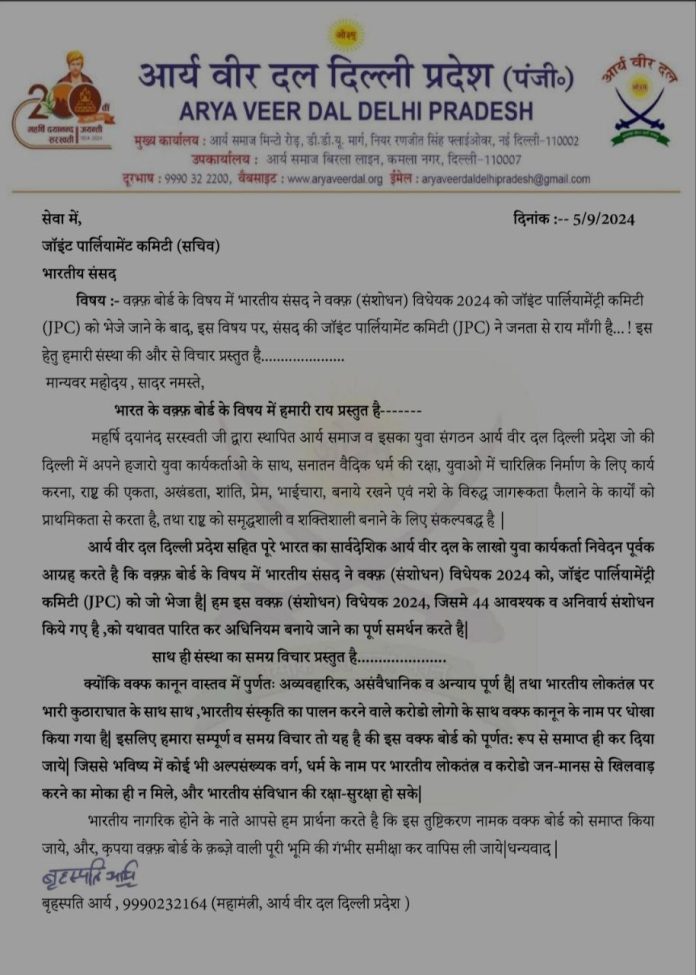 ओ३म्
आर्य वीर दल दिल्ली प्रदेश (पंजी०)
ARYA VEER DAL DELHI PRADESH
200वीं
महर्षि दयानन्द सरस्वती जयन्ती
आर्य वीर दल
मुख्य कार्यालय : आर्य समाज मिन्टो रोड़, डी.डी.यू. मार्ग, नियर रणजीत सिंह फ्लाईओवर, नई दिल्ली-110002
उपकार्यालय : आर्य समाज बिरला लाइन, कमला नगर, दिल्ली-110007
दूरभाष : 9990 32 2200, वैबसाइट : www.aryaveerdal.org ईमेल : aryaveerdaldelhipradesh@gmail.com
सेवा में, दिनांक :-- 5/9/2024
जॉइंट पार्लियामेंट कमिटी (सचिव)
भारतीय संसद
विषय :- वक़्फ़ बोर्ड के विषय में भारतीय संसद ने वक्फ़ (संशोधन) विधेयक 2024 को जॉइंट पार्लियामेंट्री कमिटी
(JPC) को भेजे जाने के बाद, इस विषय पर, संसद की जॉइंट पार्लियामेंट कमिटी (JPC) ने जनता से राय माँगी है... ! इस
हेतु हमारी संस्था की और से विचार प्रस्तुत है.....................
मान्यवर महोदय , सादर नमस्ते,
भारत के वक़्फ़ बोर्ड के विषय में हमारी राय प्रस्तुत है-------
महर्षि दयानंद सरस्वती जी द्वारा स्थापित आर्य समाज व इसका युवा संगठन आर्य वीर दल दिल्ली प्रदेश जो की
दिल्ली में अपने हजारो युवा कार्यकर्ताओ के साथ, सनातन वैदिक धर्म की रक्षा, युवाओ में चारित्रिक निर्माण के लिए कार्य
करना, राष्ट्र की एकता, अखंडता, शांति, प्रेम, भाईचारा, बनाये रखने एवं नशे के विरुद्ध जागरूकता फैलाने के कार्यों को
प्राथमिकता से करता है, तथा राष्ट्र को समृद्धशाली व शक्तिशाली बनाने के लिए संकल्पबद्ध है |
आर्य वीर दल दिल्ली प्रदेश सहित पूरे भारत का सार्वदेशिक आर्य वीर दल के लाखो युवा कार्यकर्ता निवेदन पूर्वक
आग्रह करते है कि वक़्फ़ बोर्ड के विषय में भारतीय संसद ने वक्फ़ (संशोधन) विधेयक 2024 को, जॉइंट पार्लियामेंट्री
कमिटी (JPC) को जो भेजा है| हम इस वक्फ़ (संशोधन) विधेयक 2024, जिसमे 44 आवश्यक व अनिवार्य संशोधन
किये गए है ,को यथावत पारित कर अधिनियम बनाये जाने का पूर्ण समर्थन करते है|
साथ ही संस्था का समग्र विचार प्रस्तुत है......................
क्योंकि वक्फ कानून वास्तव में पुर्णतः अव्यवहारिक, असंवैधानिक व अन्याय पूर्ण है| तथा भारतीय लोकतंत्र पर
भारी कुठाराघात के साथ साथ ,भारतीय संस्कृति का पालन करने वाले करोडो लोगो के साथ वक्फ कानून के नाम पर धोखा
किया गया है| इसलिए हमारा सम्पूर्ण व समग्र विचार तो यह है की इस वक्फ बोर्ड को पूर्णत: रूप से समाप्त ही कर दिया
जाये| जिससे भविष्य में कोई भी अल्पसंख्यक वर्ग, धर्म के नाम पर भारतीय लोकतंत्र व करोडो जन-मानस से खिलवाड़
करने का मोका ही न मिले, और भारतीय संविधान की रक्षा-सुरक्षा हो सके|
भारतीय नागरिक होने के नाते आपसे हम प्रार्थना करते है कि इस तुष्टिकरण नामक वक्फ बोर्ड को समाप्त किया
जाये, और, कृपया वक़्फ़ बोर्ड के क़ब्ज़े वाली पूरी भूमि की गंभीर समीक्षा कर वापिस ली जाये|धन्यवाद |
बृहस्पति आर्य
बृहस्पति आर्य , 9990232164 (महामंत्री, आर्य वीर दल दिल्ली प्रदेश )